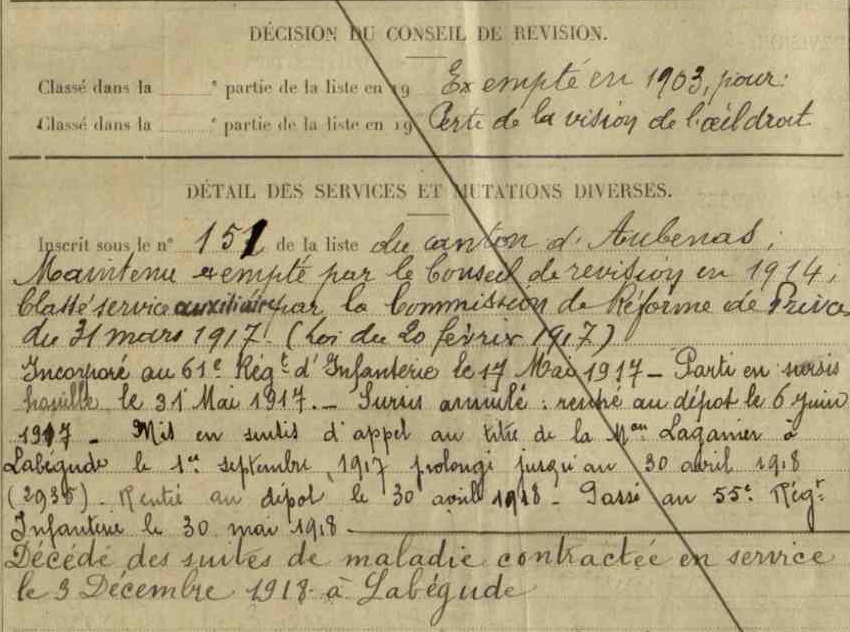 DÉCISION DU CONSEIL DE REVISION.
Classé dans la e partie de la liste en 19 Exempté en 1903, pour:
Classé dans la e partie de la liste en 19 Perte de la vision de l'œil droit
DÉTAIL DES SERVICES ET MUTATIONS DIVERSES.
Inscrit sous le n° 151 de la liste du canton d'Aubenas,
Maintenu exempté par le Conseil de revision en 1914,
Classé service auxiliaire par la Commission de Réforme de Privas
du 31 mars 1917. (Loi du 20 février 1917)
Incorporé au 61e Régt d'Infanterie le 17 Mai 1917 — Parti en sursis
houille le 31 Mai 1917. — Sursis annulé : rentré au dépot le 6 juin
1917 — Mis en sursis d'appel au titre de la Mon Laganier à
Labégude le 1er septembre 1917 prolongé jusqu'au 30 avril 1918
(2935) — Rentré au dépot le 30 avril 1918 — Passé au 55e Régt
Infanterie le 30 mai 1918 —
Décédé des suites de maladie contractée en service
le 3 Décembre 1918 à Labégude